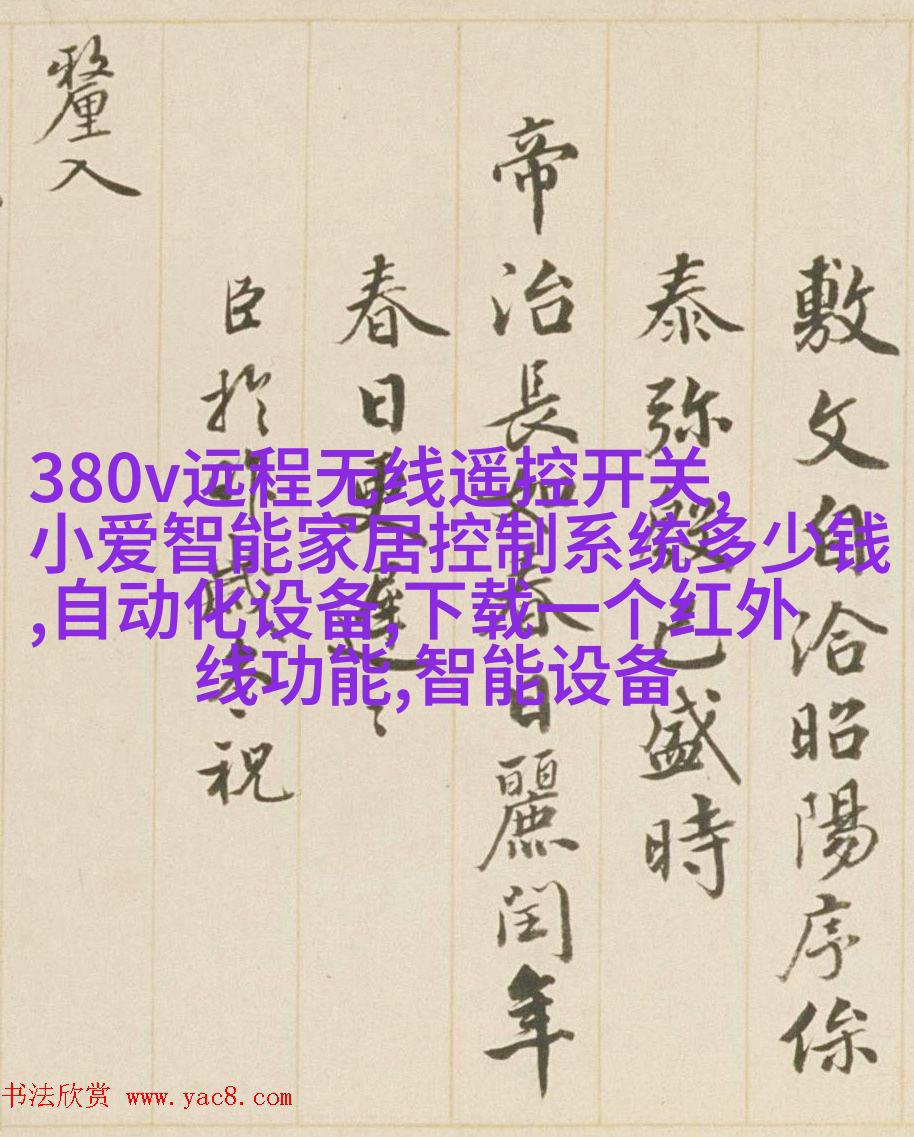 敷文自洽昭陽序倐
泰弥殷已盛時
帝治長如春日麗閏年
春日更遲〻
臣於祝
釐入
380v远程无线遥控开关,
小爱智能家居控制系统多少钱
,自动化设备,下载一个红外
线功能,智能设备
书法欣赏 www.yac8.com